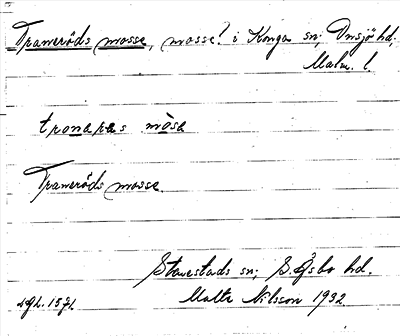 Traneröds mosse, mosse! i Konga sn; Onsjö hd,
Malm. l.
tronaræs mòsa
Traneröds mosse
Starestads sn; S. Åsbo hd.
Malte Nilsson 1932